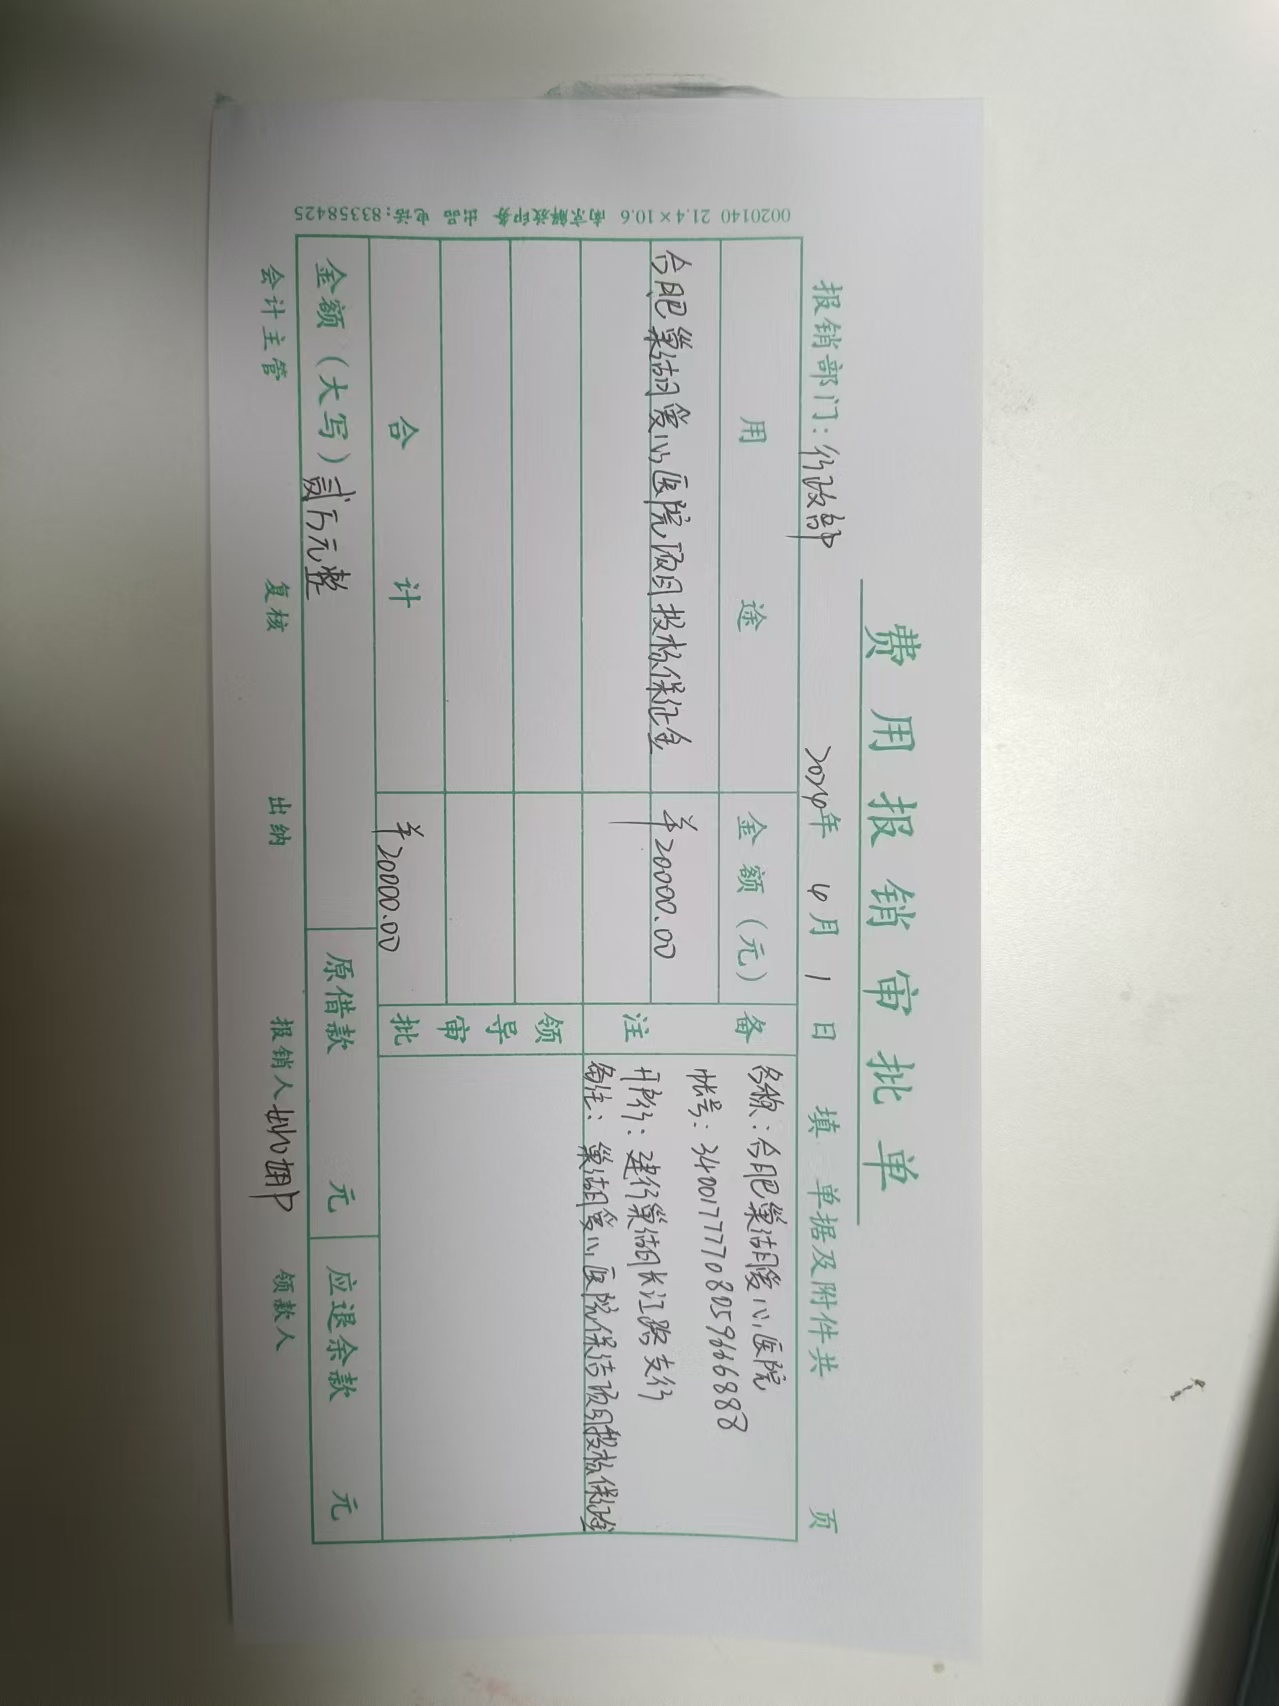 费用报销审批单
报销部门：行政部 2024年 4月 1日 填 单据及附件共 页
用途 金额（元） 备注
合肥巢湖爱心医院项目投标保证金 ¥20000.00
名称：合肥巢湖爱心医院
帐号：34001777708059666888
开户行：建行巢湖长江路支行
备注：巢湖爱心医院保洁项目投标保证金
领导审批
合计 ¥20000.00
金额（大写）贰万元整 原借款 元 应退余款 元
会计主管 复核 出纳 报销人 领款人
0020140 21.4×10.6 南京解放印务 出品 电话:83358425